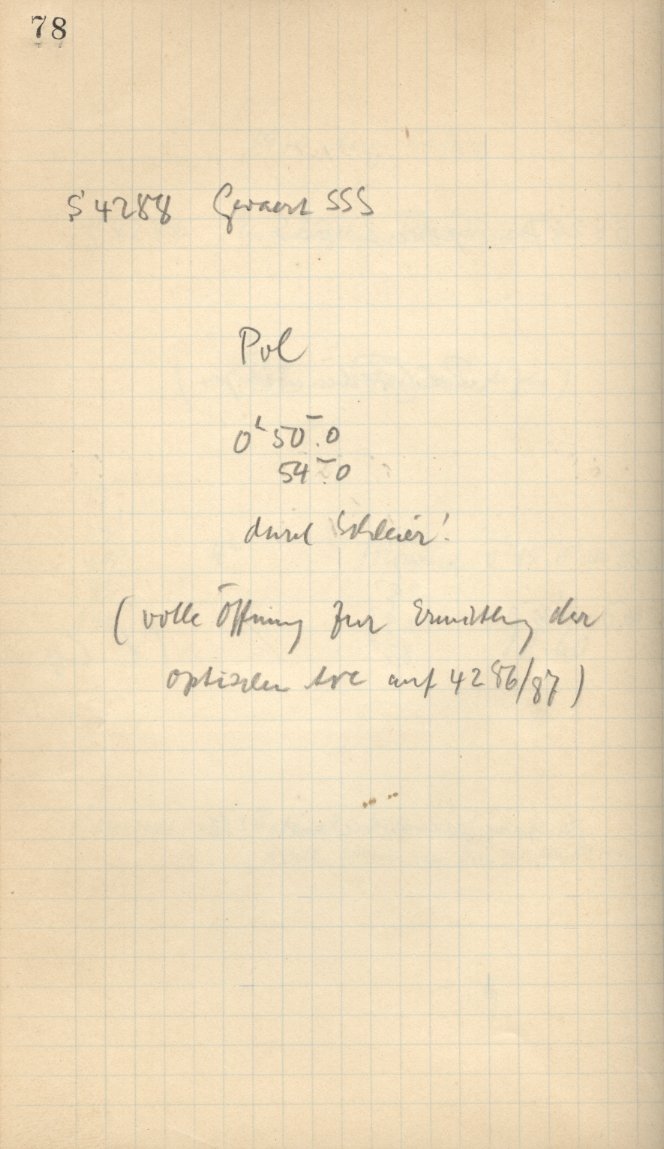 78
S 4288 Gevaert SSS
Pol
0ʰ 50ᵐ.0
54ᵐ.0
durch Schleier!
(volle Öffnung zur Ermittlung der
optischen Axe auf 4286/87)